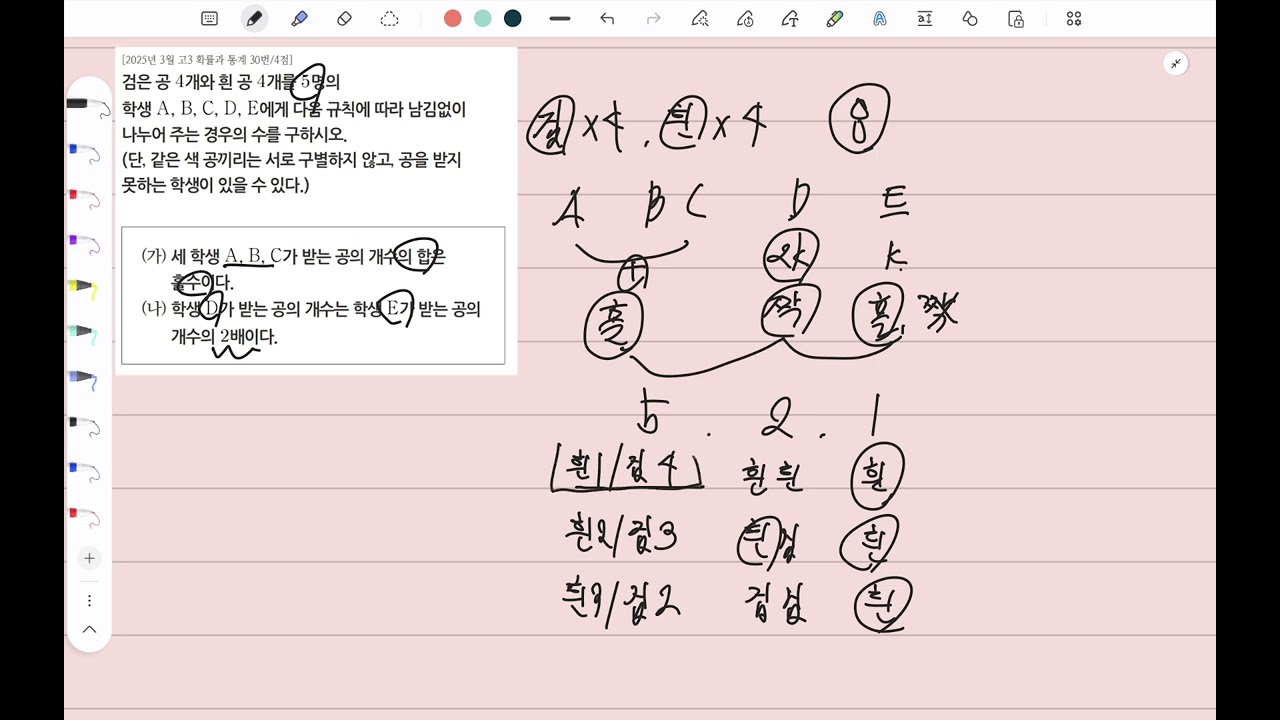 [2025년 3월 고3 확률과 통계 30번/4점]
검은 공 4개와 흰 공 4개를 5명의
학생 A, B, C, D, E에게 다음 규칙에 따라 남김없이
나누어 주는 경우의 수를 구하시오.
(단, 같은 색 공끼리는 서로 구별하지 않고, 공을 받지
못하는 학생이 있을 수 있다.)
(가) 세 학생 A, B, C가 받는 공의 개수의 합은
홀수이다.
(나) 학생 D가 받는 공의 개수는 학생 E가 받는 공의
개수의 2배이다.
검 x4 . 흰 x 4 8
A B C D E
+ 2k k.
홀. 짝 홀, 짝x
5 . 2 . 1
흰1/검4 흰흰 흰
흰2/검3 흰검 흰
흰3/검2 검검 흰